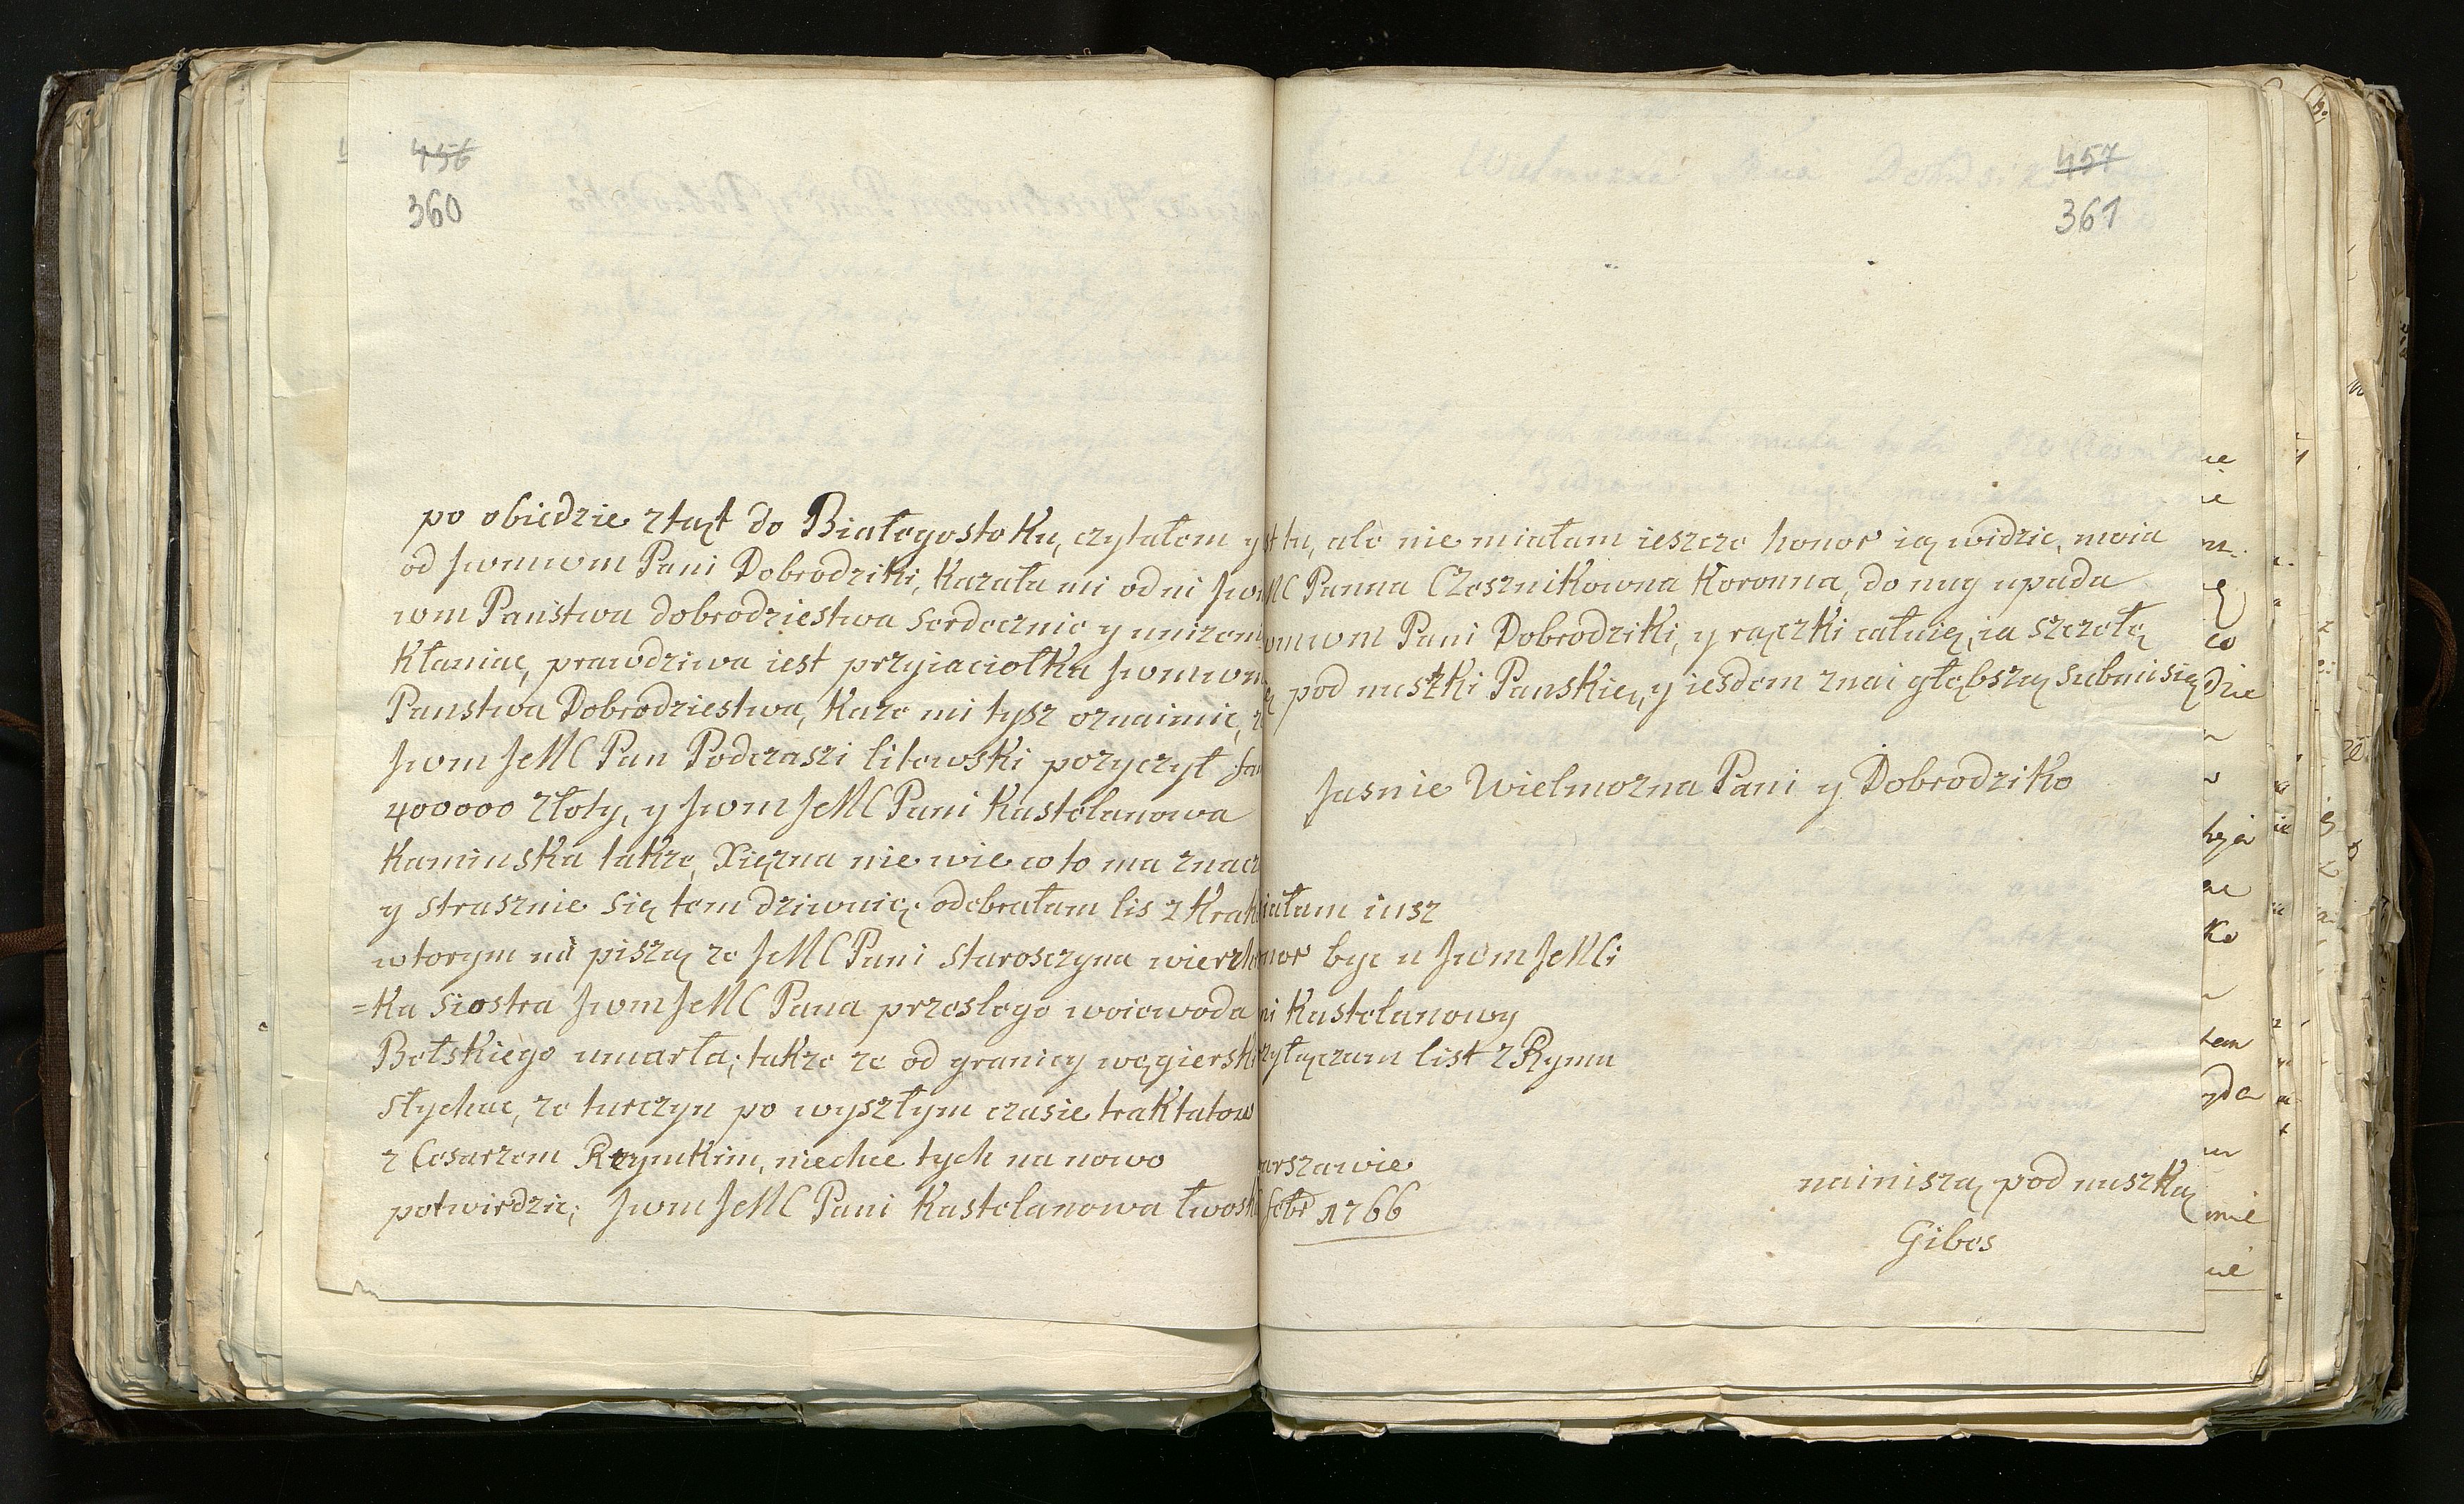 456
360
po obiedzie ztąt do Białegostoku, czytałem
od Jwmwm Pani Dobrodziki, Kazała mi od ni
wm Państwa dobrodziestwa serdecznie y
Kłaniac, prawdziwa iest przyiaciołka
Panstwa Dobrodziestwa, Kaze mi tysz oznaimic,
Jwm JeMC Pan Podczaszi litowski pozyczył
400000 złoty, y Jwm JeMC Pani Kastelanowa
Kaminska takze, Xięzna nie wie co to ma
y strasznie się tem dziwuię: odebrałam lis z
wtorym mi piszą ze JeMC Pani starosczyna
=ka siostra Jwm JeMC Pana przeslego woiewoda
Bełskiego umarła; takze ze od granicy
słychac, ze turczyn po wyszłym czasie traktatow
z Cesarzem Rzymkim, niechce tych na nowo
potwirdzic; Jwm JeMC Pani Kastelanowa
457
361
tu, ale nie miałam ieszcze honor ią widzic, moia
Panna Czesznikowna Koronna, do nug upada
Pani Dobrodziki, y rączki całuię, ia sczelę
pod nuszki Panskie, y iesdem znai głębszą submisię
Jasnie Wielmozna Pani y Dobrodziko
iusz
byc u Jwm JeMCi
Kastelanowy
list z Rymu
1766
nainiszą pod nuszką
Gibes